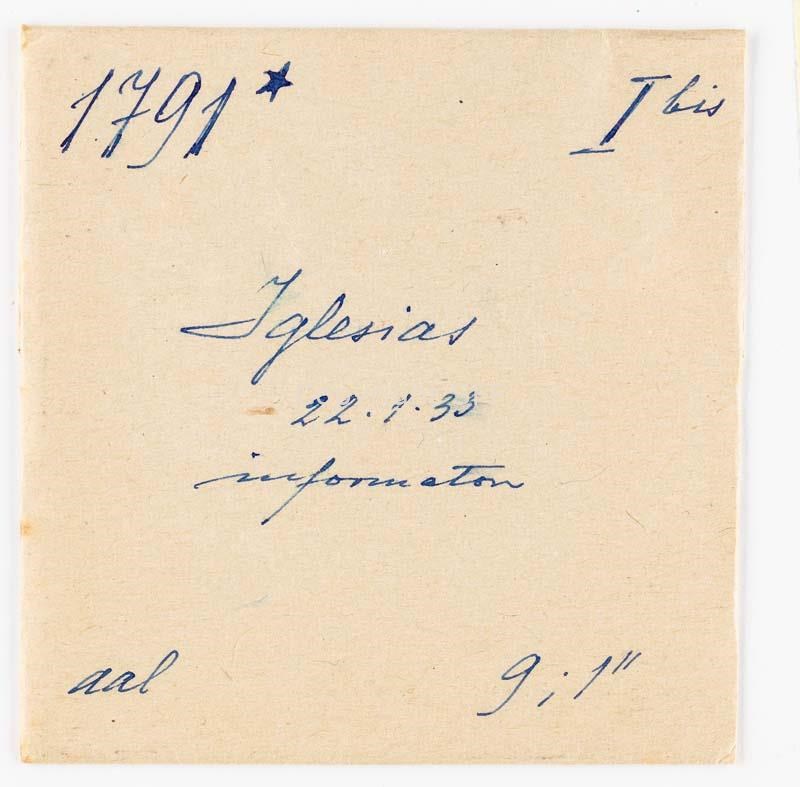 1791* I bis
Iglesias
22.1.33
informaton
aal 9; 1"